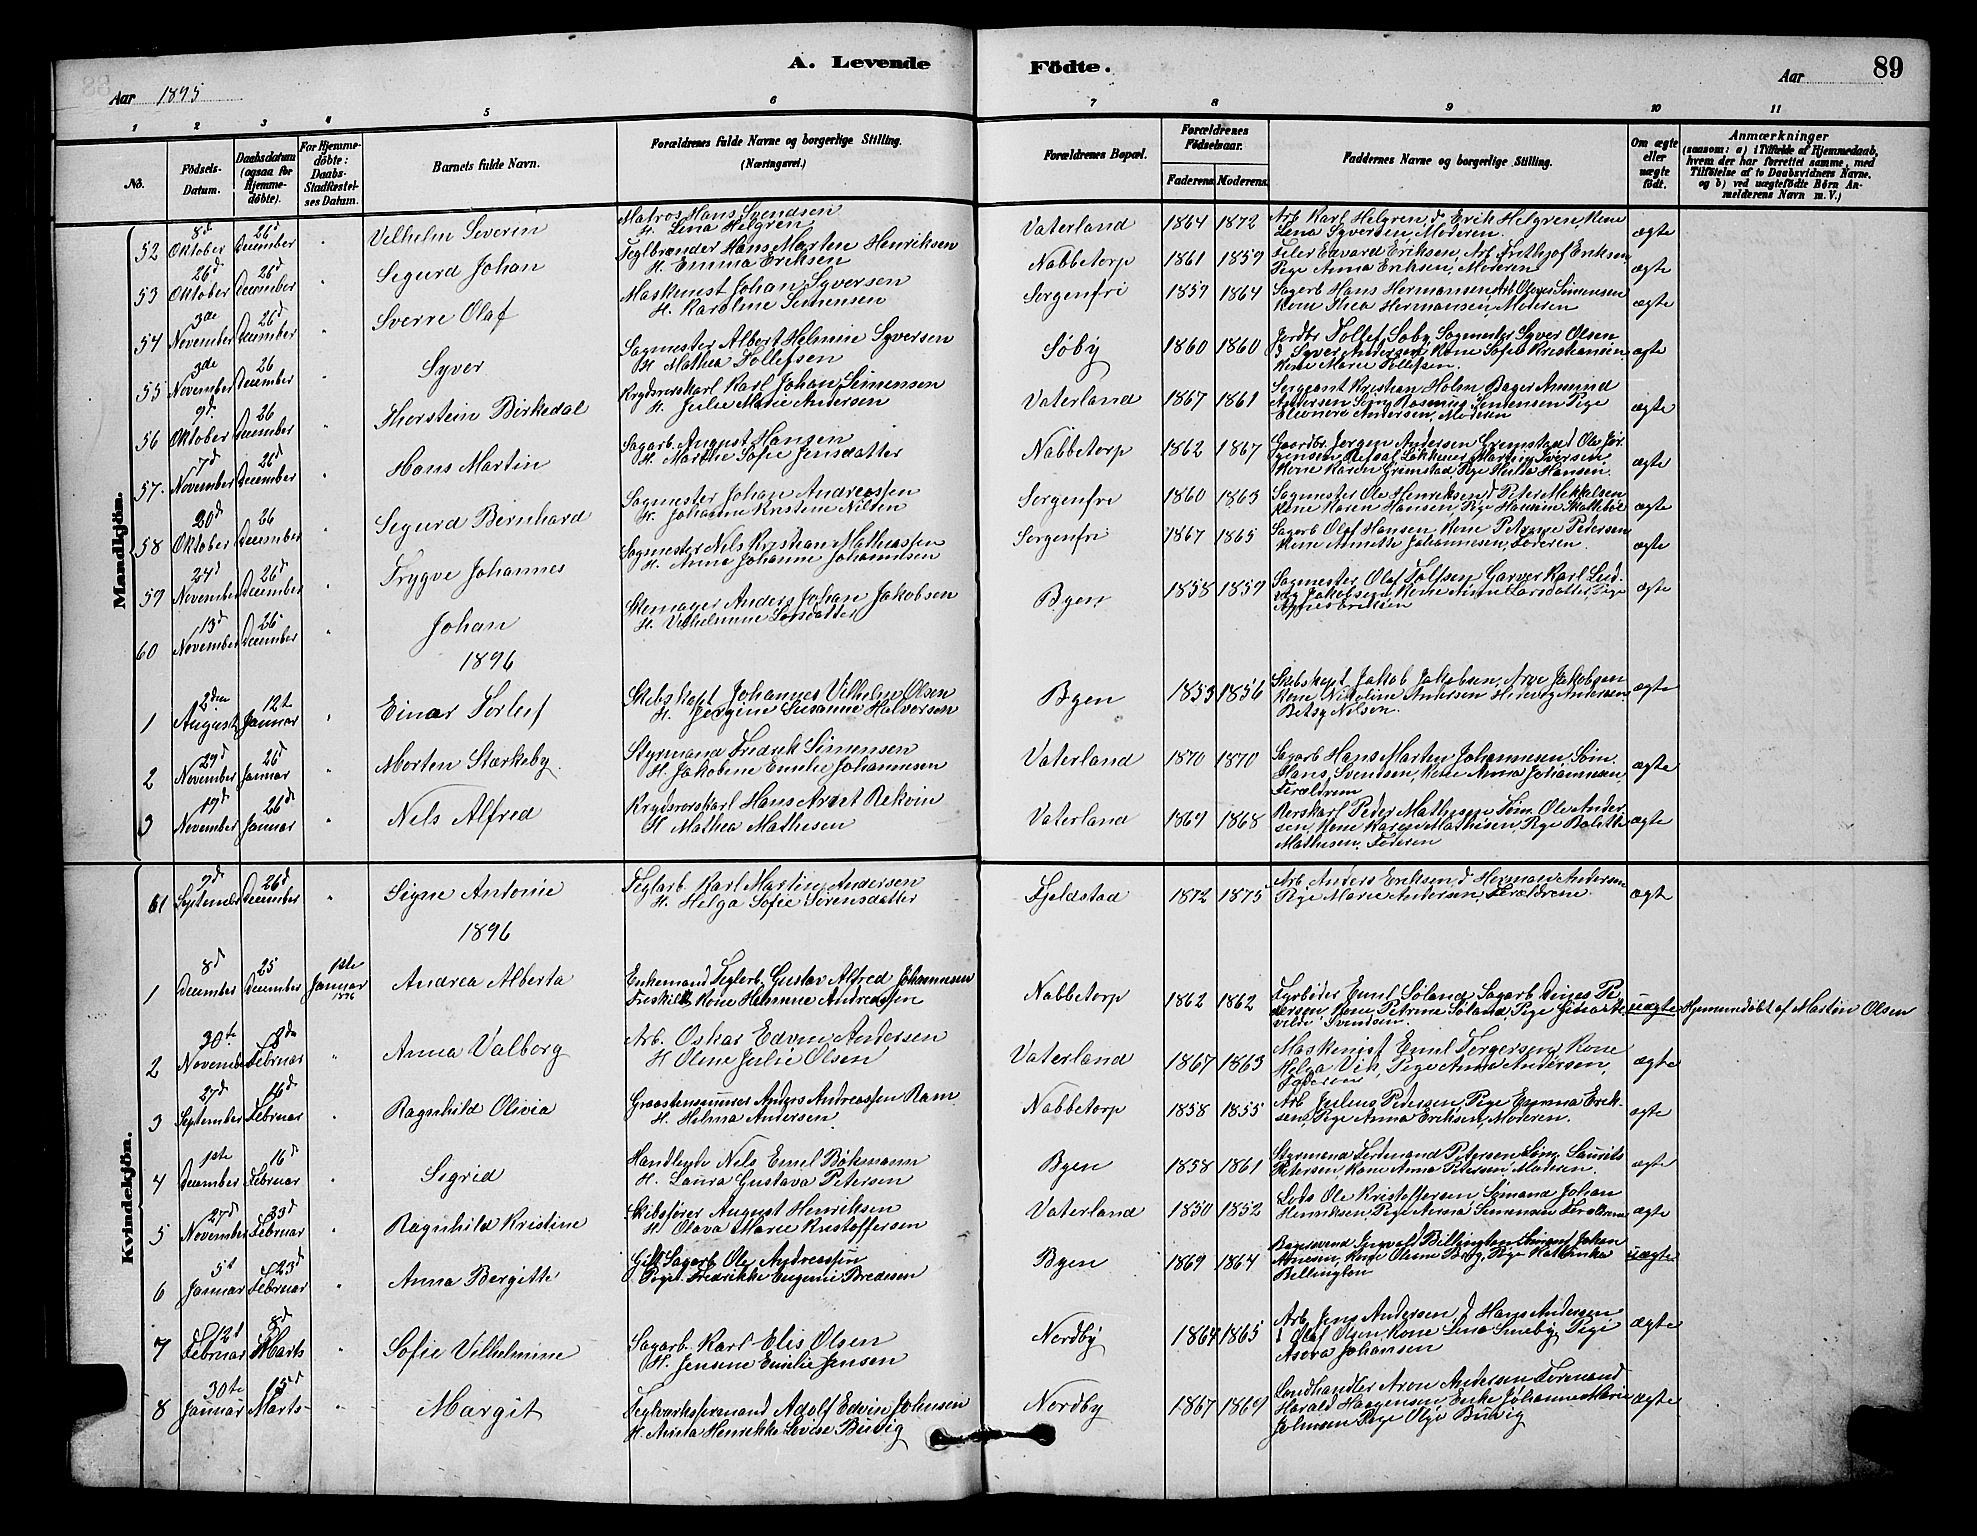 A. Levende Födte. 89
Aar 1895 Aar
1 2 3 4 5 6 7 8 9 10 11
No.
Födsels-Datum.
Daabsdatum (ogsaa for Hjemme-döbte).
For Hjemme-döbte: Daabs-Stadfæstelses Datum.
Barnets fulde Navn.
Forældrenes fulde Navne og borgerlige Stilling.
(Næringsvei.)
Forældrenes Bopæl.
Forældrenes Födselsaar.
Faderens. Moderens.
Faddernes Navne og borgerlige Stilling.
Om ægte eller uægte födt.
Anmærkninger
(saasom: a) i Tilfælde af Hjemmedaab, hvem der har forrettet samme, med Tilföielse af to Daabsvidners Navne. og b) ved uægtefödte Börn Anmelderens Navn m. V.)
Mandkjön.
52 8d Oktober 26d December " Vilhelm Severin Matros Hans Svendsen
H. Lina Helgren Vaterland 1864 1872 Arb. Karl Helgren, d. Erik Helgren, Kone
Lena Syversen, Moderen. ægte
53 26d Oktober 26d December " Sigurd Johan Teglbrænder Hans Marten Henriksen
H. Emma Eriksen Nabbetorp 1861 1859 Feler Edvard Eriksen, Arb. Frithjof Eriksen,
Pige Anna Eriksen, Moderen ægte
54 3de November 26d December " Sverre Olaf Maskinist Johan Syversen
H. Karoline Simensen Sorgenfri 1857 1864 Sagarb. Hans Hermansen, Arb. Olaves Simensen
Kone Thea Hermansen, Moderen ægte
55 3de November 26 December " Syver Sagmester Albert Helmine Syversen
H. Mathea Tollefsen Söby 1860 1860 Jordbr. Tollef Soby, Sagmester Syver Olsen
d. Syver Andersen, Kone Sofie Kristiansen,
Kone Marie Tollefsen. ægte
56 9d Oktober 26 December " Thorstein Birkedal Krydserskarl Karl Johan Simensen
H. Julie Marie Andersen Vaterland 1867 1861 Sergeant Kristian Holm, Bager Amund
Andersen, Rasmus Simensen, Pige
Eleonore Andersen, Moderen ægte
57. 7d November 26d December " Hans Martin Sagarb. August Hansen
H. Marthe Sofie Jensdatter Nabbetorp 1862 1867 Gaardbr. Jorgen Andersen Gremstad, d. Ole Jör-
gensen Refsal, Martin Iversen
Kone Karen Grimstad, Pige Hulda Hansen. ægte
58 20d Oktober 26 December " Sigurd Bernhard Sagmester Johan Andreassen
H. Johanne Kristine Nilsen Sorgenfri 1860 1863 Sagmester Ole Henriksen, d. Peter Mikkelsen
Kone Karen Hansen, Pige ægte
59 24d November 26d December " Trygve Johannes Sagmester Nels Kristian Mathiassen
H. Anna Johanne Johannesen Sorgenfri 1867 1865 Sagarb. Olaf Hansen, Kone Petrine Pedersen
Kone Annette Johannesen, Faderen. ægte
60 13d November 26 December " Johan Anders Johan Jakobsen
H. Vilhelmine Larsdatter Byen 1858 1859 Sagmester Olaf Tolfsen, Garver Karl Lud-
vig Jakobsen, Kone Anne Larsdatter, Pige
Agnes Eriksen ægte
1896
1 2den August 12te Januar " Einar Torleif Skibskapt. Johannes Vilhelm Olsen
H. Jorgine Susanne Halvorsen Byen 1853 1856 Skibskapt. Jakob Jakobsen, Arve Jakobsen
Kone Nikoline Andersen, Hedevig Andersen,
Betsy Nilsen. ægte
2 29d November 26d Januar " Morten Starkeby Styrmand Fredrik Simensen
H. Jakobine Emilie Johannesen Vaterland 1870 1870 Sagarb. Hans Marten Johannesen, Som.
Hans Svendsen, Kone Anna Johannesen
Forældrene ægte
3 19d November 26de Januar " Nels Alfred Krydserskarl Hans Arnet Rekvin
H. Mathea Mathisen Vaterland 1869 1868 Rorskarl Peder Mathisen, Töm. Ole Ander-
sen, Kone Karen Mathisen, Pige Bolette
Mathisen, Faderen ægte
Kvindekjön.
61 9d September 26d December " Signe Antonie Teglarb. Karl Martin Andersen
H. Helga Sofie Sorensdatter Fjeldstad 1872 1875 Arb. Anders Eriksen, d. Herman Andersen
Pige Marie Andersen, Forældrene. ægte
1896
1 8d December 25 December 1ste Januar 1896 Andrea Alberta Enkemand Teglarb. Gustav Alfred Johannesen
Fraskilt Kone Helmine Andreassen Nabbetorp 1862 1862 Fyrböder Emil Soland, Sagarb. Dines Pe-
dersen, Kone Petrine Soland, Pige
Svendsen. uægte Hjemmedöbt af Martin Olsen
2 30te November 9de Februar " Anna Valborg Arb. Oskar Edvin Andersen
H. Oline Julie Olsen Vaterland 1867 1863 Maskinist Emil Torgersen, Kone
Helga Vik, Pige Anna Andersen,
Faderen ægte
3 27d September 16d Februar " Ragnhild Olivia Graastensminer Anders Andreassen Ram
H. Helma Andersen. Nabbetorp 1858 1855 Arb. Julius Pedersen, Pige Emma Erik-
sen, Pige Anna Eriksen, Moderen. ægte
4 1ste December 16d Februar " Sigrid Nels Emil Bökmann
H. Laura Gustava Petersen Byen 1858 1861 Styrmand Ferdinand Petersen, Laurits
Petersen, Kone Anna Petersen, Moderen. ægte
5 27d November 23d Februar " Ragnhild Kristine Skibsförer August Henriksen
H. Olava Marie Kristoffersen Vaterland 1850 1852 Lods Ole Kristoffersen, Sömand Johan
Henriksen, Pige Anna Simensen, Forældrene ægte
6 5t Januar 23d Februar " Anna Bergitte Gift Sagarb. Ole Andreassen
Pige Fredrikke Eugenie Bredesen Byen 1869 1864 Ingvald Billington, Johan
Arnesen, Kone Oline Berg, Pige Kathinka
Billington uægte
7 12t Februar 8d Marts " Sofie Vilhelmine Sagarb. Karl Elis Olsen
H. Jensine Emilie Jensen Nordby 1864 1865 Arb. Jens Andersen, d. Hans Andersen
d. Olaf Olsen, Kone Lina Smeby, Pige
Asora Johansen ægte
8 30te Januar 15d Marts " Margit Teglværksformand Adolf Edvin Johnsen
H. Anna Henrikke Lovise Buvig Nordby 1867 1869 Landhandler Aron Andersen, Formand
Harald Haagensen, Enke Johanne Marie
Johnsen, Pige Olga Buvig ægte